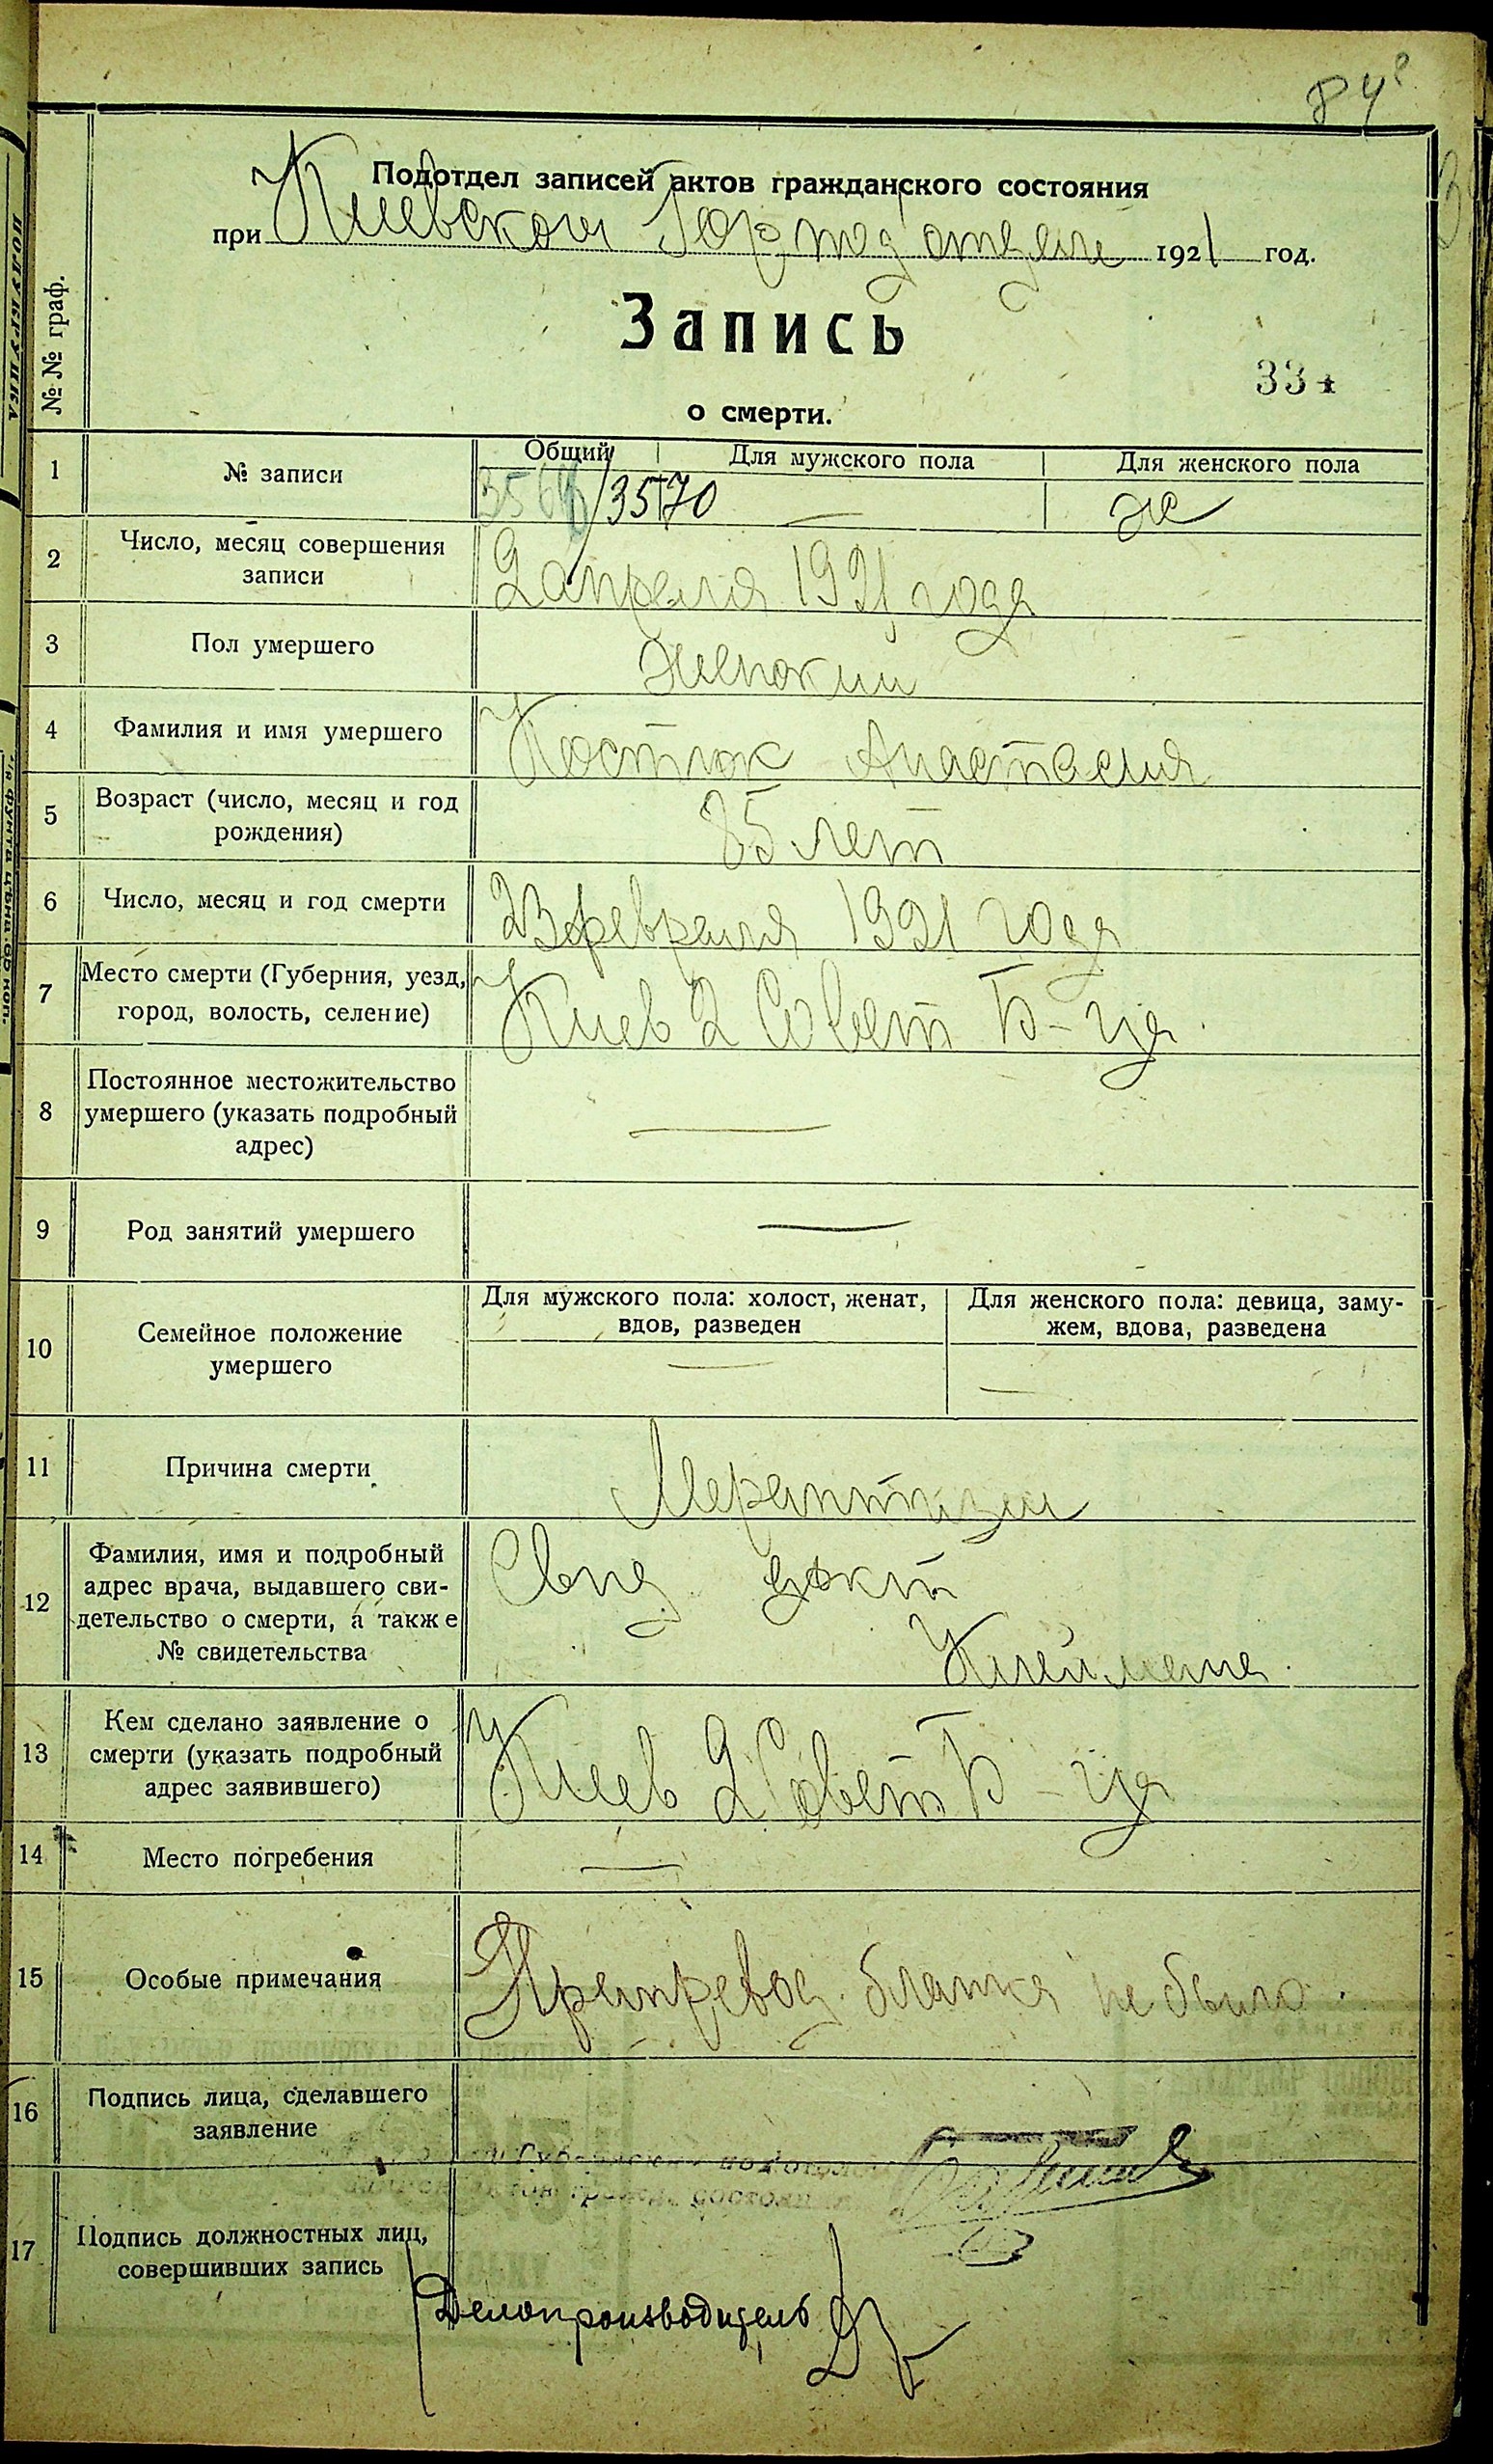 84
Подотдел записей актов гражданского состояния
при Киевском Гор, под отделе 1921 год.
№№ граф.
Запись
334
о смерти.
1 № записи Общий Для мужского пола Для женского пола
3570 — Ж
2 Число, месяц совершения
записи
2 апреля 1921 года
3 Пол умершего женский
4 Фамилия и имя умершего Костюк Анастасия
5 Возраст (число, месяц и год
рождения)
лет
6 Число, месяц и год смерти 23 февраля 1921 года
7 Место смерти (Губерния, уезд,
город, волость, селение)
Киев 2 Совет Б-ца
8 Постоянное местожительство
умершего (указать подробный
адрес)
—
9 Род занятий умершего —
10 Семейное положение
умершего
Для мужского пола: холост, женат,
вдов, разведен
—
Для женского пола: девица, заму-
жем, вдова, разведена
—
11 Причина смерти
12 Фамилия, имя и подробный
адрес врача, выдавшего сви-
детельство о смерти, а также
№ свидетельства
Свид докт
Клеймана
13 Кем сделано заявление о
смерти (указать подробный
адрес заявившего)
Киев 2 Совет Б-ца
14 Место погребения —
15 Особые примечания бланка не было.
16 Подпись лица, сделавшего
заявление
17 Подпись должностных лиц,
совершивших запись
Делопроизводитель